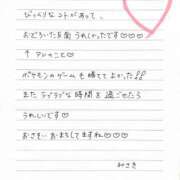 びっくりな コトがあって、
おどろいた反面 うれしかったです♡♡
↑ アレのこと♡
ポケモンのゲームも 勝てて よかった!!
また ラブラブな時間を 過ごせたら
うれしいです♡
おさそい おまちしてますね♡♡
みさき